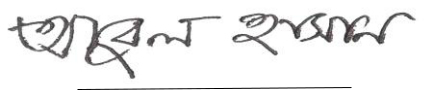 আবুল হাসান